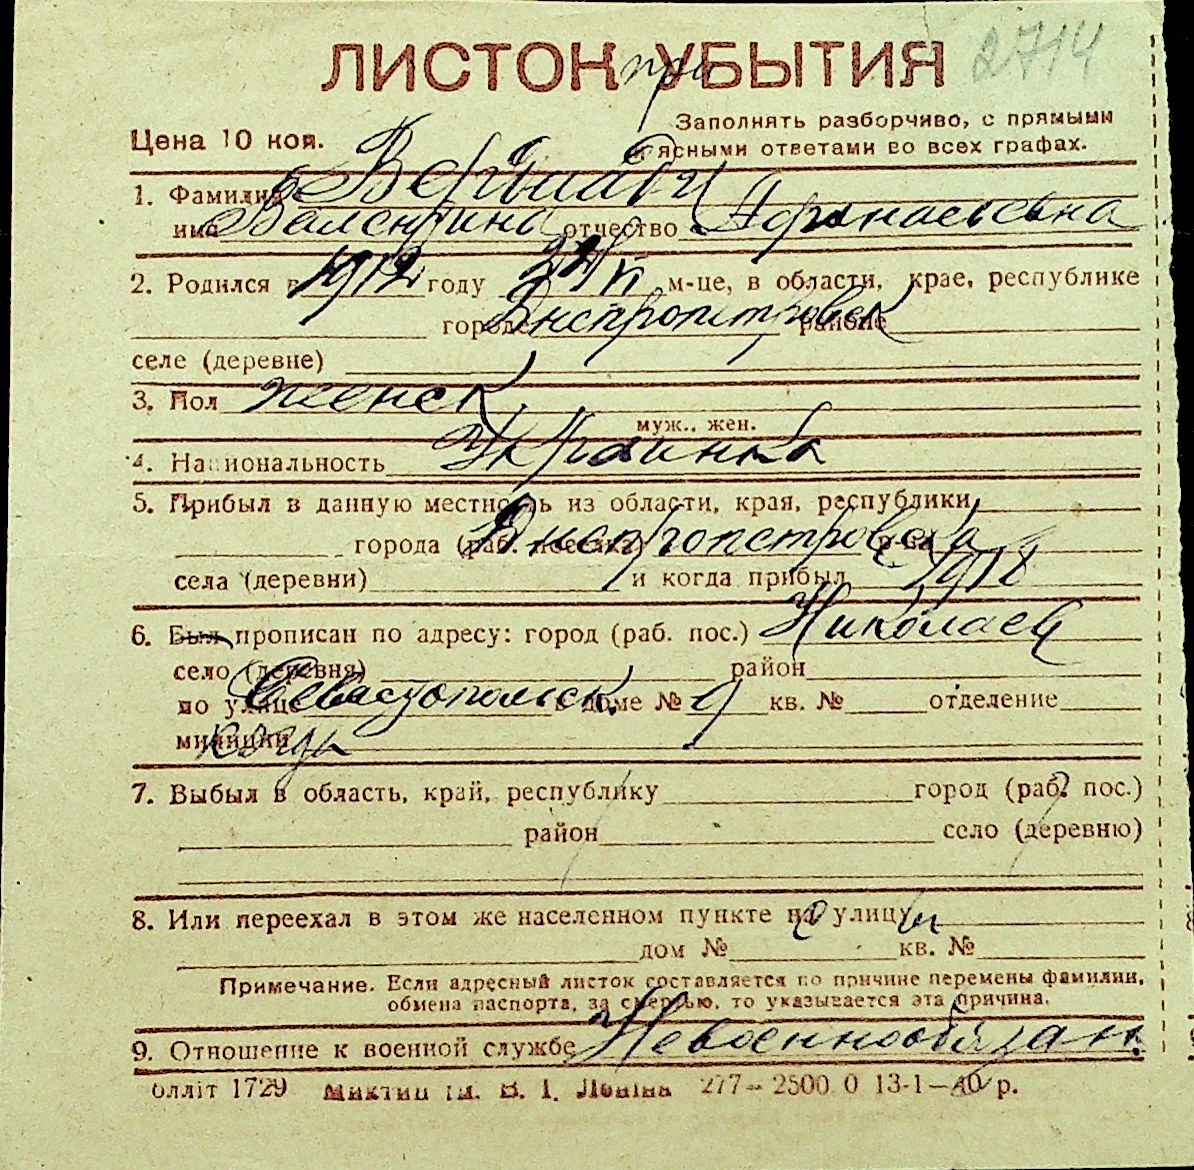 ЛИСТОК УБЫТИЯ 2714
при
Цена 10 коп.
Заполнять разборчиво, с прямыми
и ясными ответами во всех графах.
1. Фамилия
имя Валентина отчество Афанасьевна
2. Родился в 1912 году м-це, в области, крае, республике
городе Днепропетровск районе
селе (деревне)
3. Пол женск
муж., жен.
4. Национальность Украинка
5. Прибыл в данную местность из области, края, республики
города (раб. поселка) Днепропетровска р-на
села (деревни) и когда прибыл
6. Был прописан по адресу: город (раб. пос.) Николаев
село (деревня) район
по улице Севастопольск. в доме № 9 кв. № отделение
милиции
7. Выбыл в область, край, республику город (раб. пос.)
район село (деревню)
8. Или переехал в этом же населенном пункте на улицу
дом № кв. №
Примечание. Если адресный листок составляется по причине перемены фамилии,
обмена паспорта, за смертью, то указывается эта причина.
9. Отношение к военной службе Невоеннообязан.
олліт 1729 В. І. Леніна 277—2500 0 13-1—40 р.